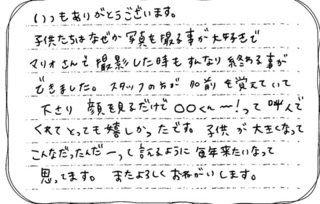 いつもありがとうございます。
子供たちはなぜか写真を撮る事が大好きで
マリオさんで撮影した時もすんなり終わる事が
できました。スタッフの方が名前を覚えていて
下さり 顔を見るだけで〇〇くん〜!って叫んで
くれてとっても嬉しかったです。子供が大きくなって
こんなだったんだーって言えるように毎年来たいなって
思ってます。またよろしくおねがいします。